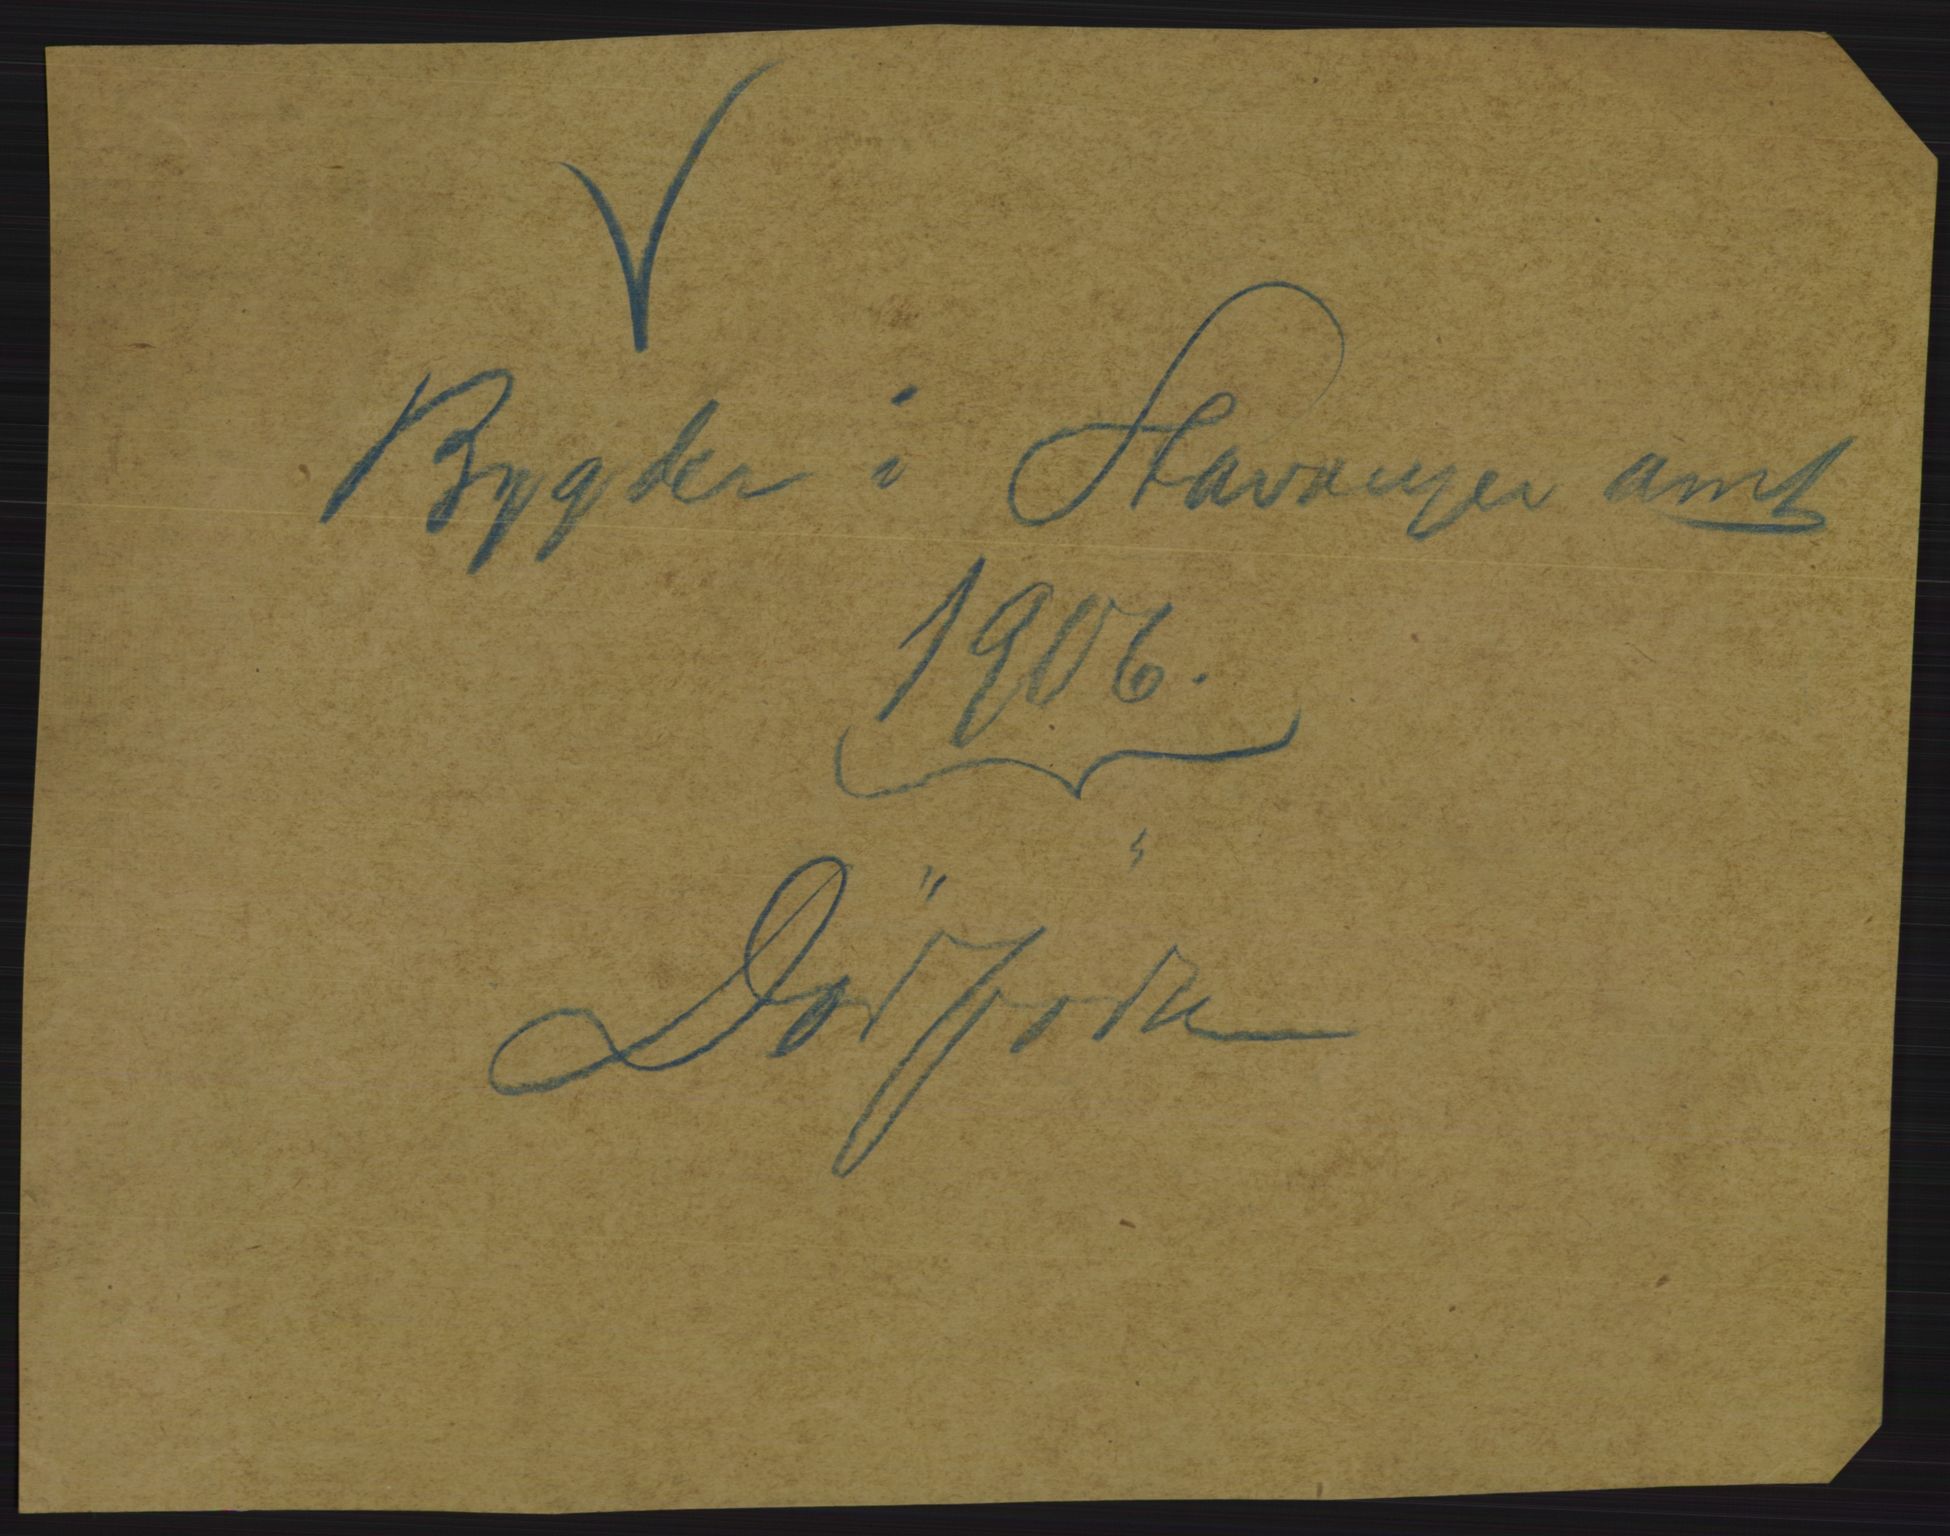 V
Bygder i Stavanger amt
1906.
Dödsfödte